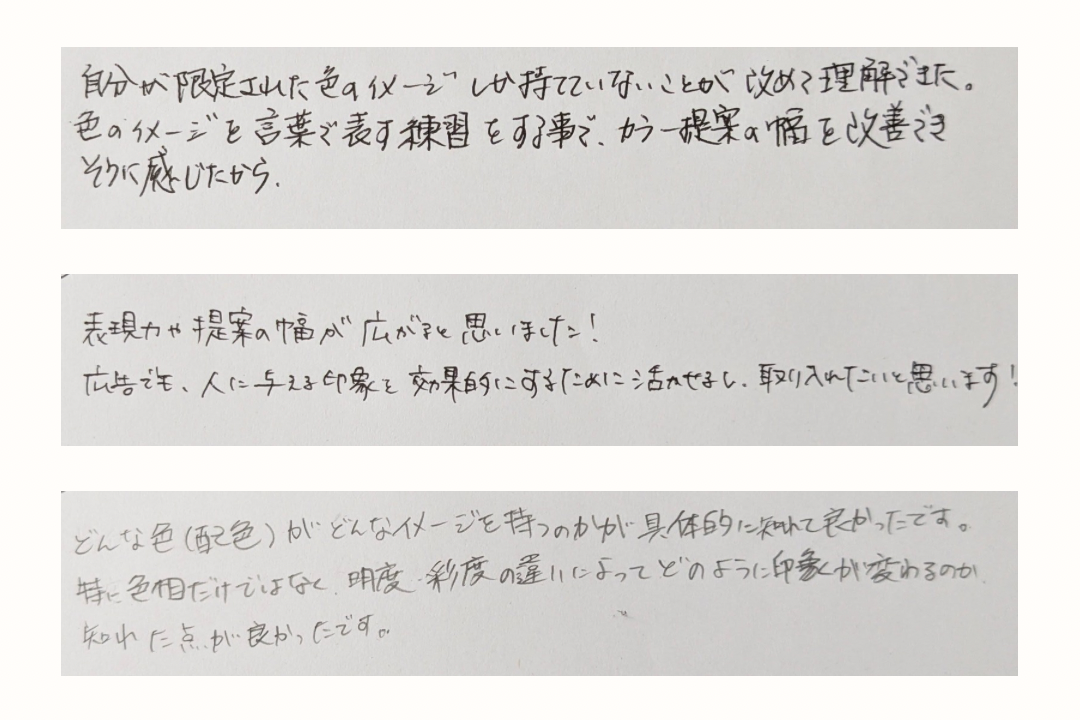 自分が限定された色のイメージしか持てていないことが改めて理解できた。
色のイメージを言葉で表す練習をする事で、カラー提案の幅を改善でき
そうに感じたから.
表現力や提案の幅が広がると思いました!
広告でも、人に与える印象を効果的にするために活かせるし、取り入れたいと思います!
どんな色(配色)がどんなイメージを持つのかが具体的に知れて良かったです。
特に色相だけではなく、明度・彩度の違いによってどのように印象が変わるのか
知れた点が良かったです。